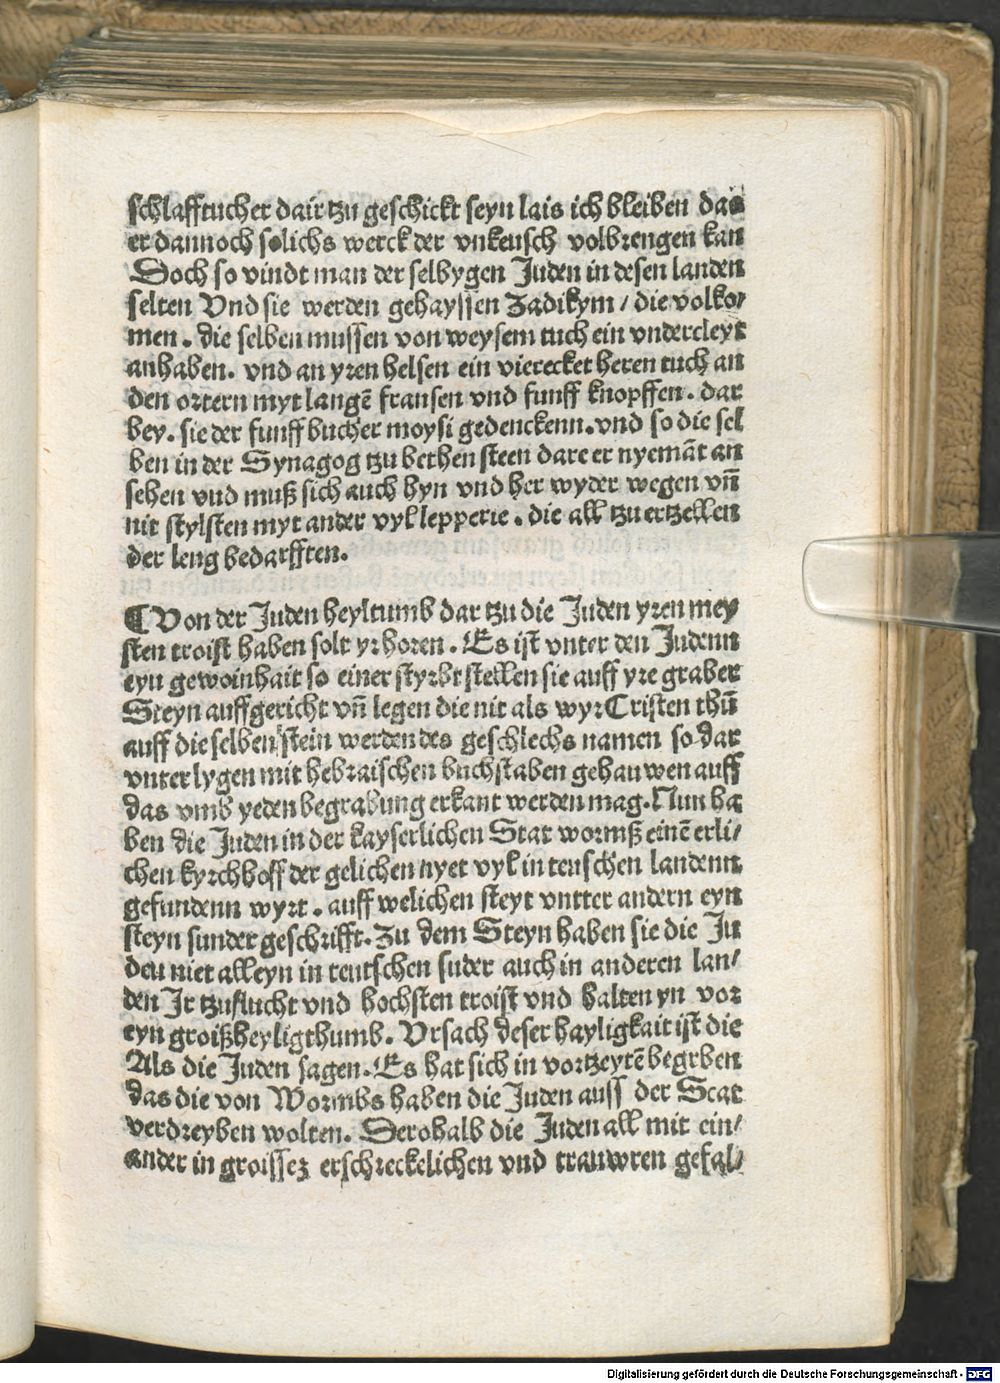 schlafftucher dair tzu geschickt seyn lais ich bleiben das
er dannoch solichs werck der vnkeusch volbrengen kan
Doch so vindt man der selbygen Juden in desen landen
selten Vnd sie werden gehayssen Zadikym / die volko/
men . die selben mussen von weysem tuch ein vndercleyt
anhaben. vnd an yren helsen ein vierecket heren tuch an
den ortern myt langē fransen vnd funff knopffen . dar
bey. sie der funff bucher moysi gedenckenn. vnd so die sel
ben in der Synagog tzu bethen steen dare er nyemāt an
sehen vnd muß sich auch hyn vnd her wyder wegen vn̄
nit stylsten myt ander vyl lepperie . die all tzu ertzellen
der leng bedarfften.
¶ Von der Juden heyltumb dar tzu die Juden yren mey
sten troist haben solt yr horen . Es ist vnter den Judenn
eyn gewoinhait so einer styrbt stellen sie auff yre graber
Steyn auffgericht vn̄ legen die nit als wyr Cristen thū
auff die selben stein werden des geschlechs namen so dar
vnter lygen mit hebraischen buchstaben gehauwen auff
das vmb yeden begrabung erkant werden mag. Nun ha
ben die Juden in der kayserlichen Stat wormß einē erli/
chen kyrchhoff der gelichen nyet vyl in teuschen landenn
gefundenn wyrt . auff welichen steyt vntter andern eyn
steyn sunder geschrifft. Zu dem Steyn haben sie die Ju
den niet alleyn in teutschen suder auch in anderen lan/
den Jr tzuflucht vnd hochsten troist vnd halten yn vor
eyn groißheyligthumb. Vrsach deser hayligkait ist die
Als die Juden sagen. Es hat sich in vortzeytē begrben
das die von Wormbs haben die Juden auss der Stat
verdreyben wolten. Derohalb die Juden all mit ein/
ander in groissez erschreckelichen vnd trauwren gefal/
Digitalisierung gefördert durch die Deutsche Forschungsgemeinschaft - DFG